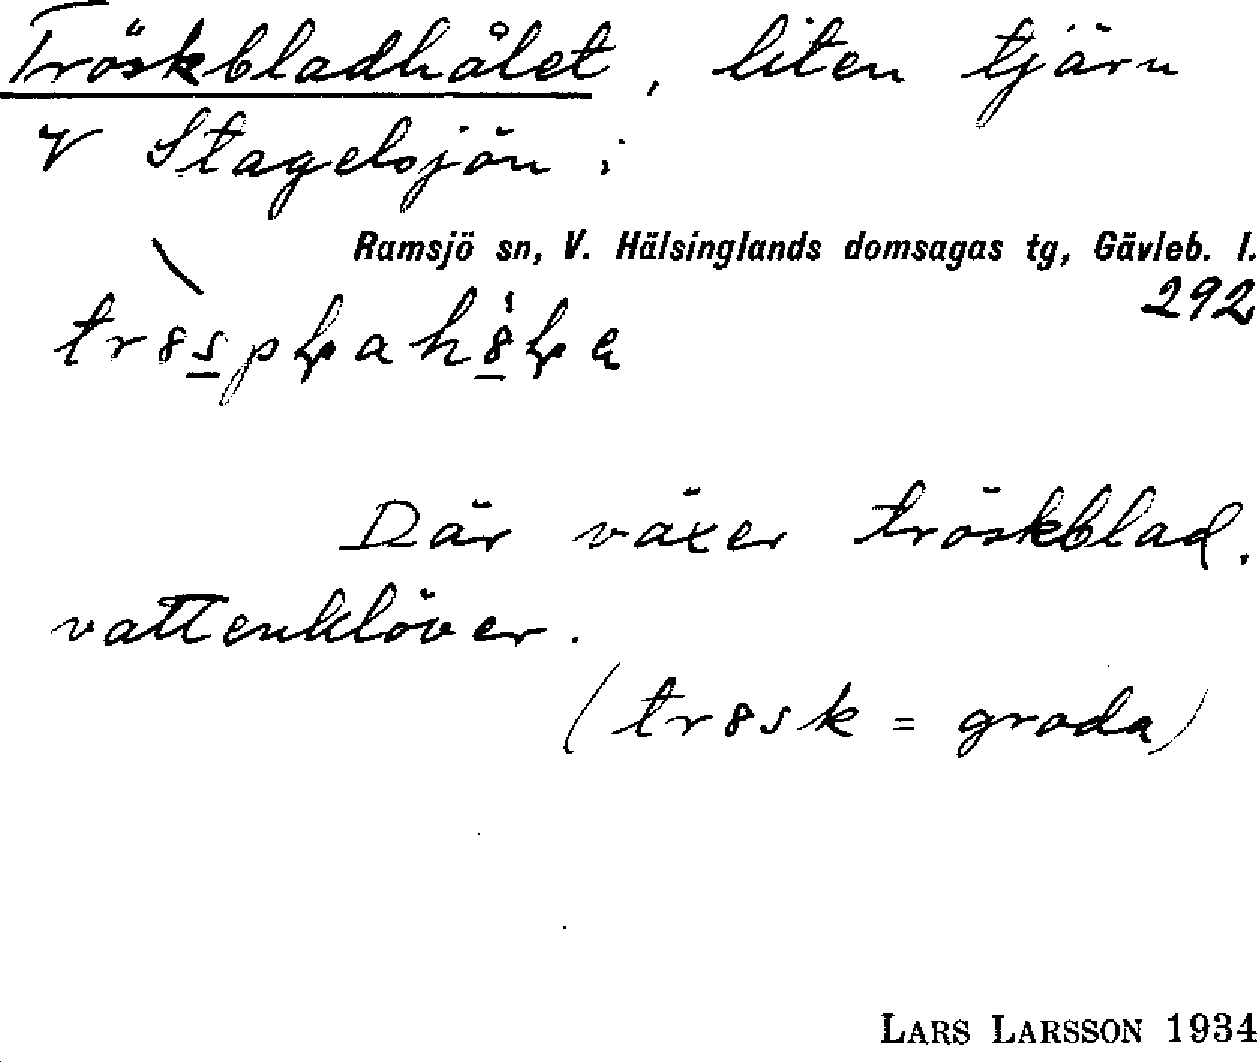 Tröskbladhålet, liten tjärn
V Stagelsjön;
Ramsjö sn, V. Hälsinglands domsagas tg, Gävleb. l.
292
Där växer tröskblad,
vattenklöver.
(tr8sk = groda)
LARS LARSSON 1934